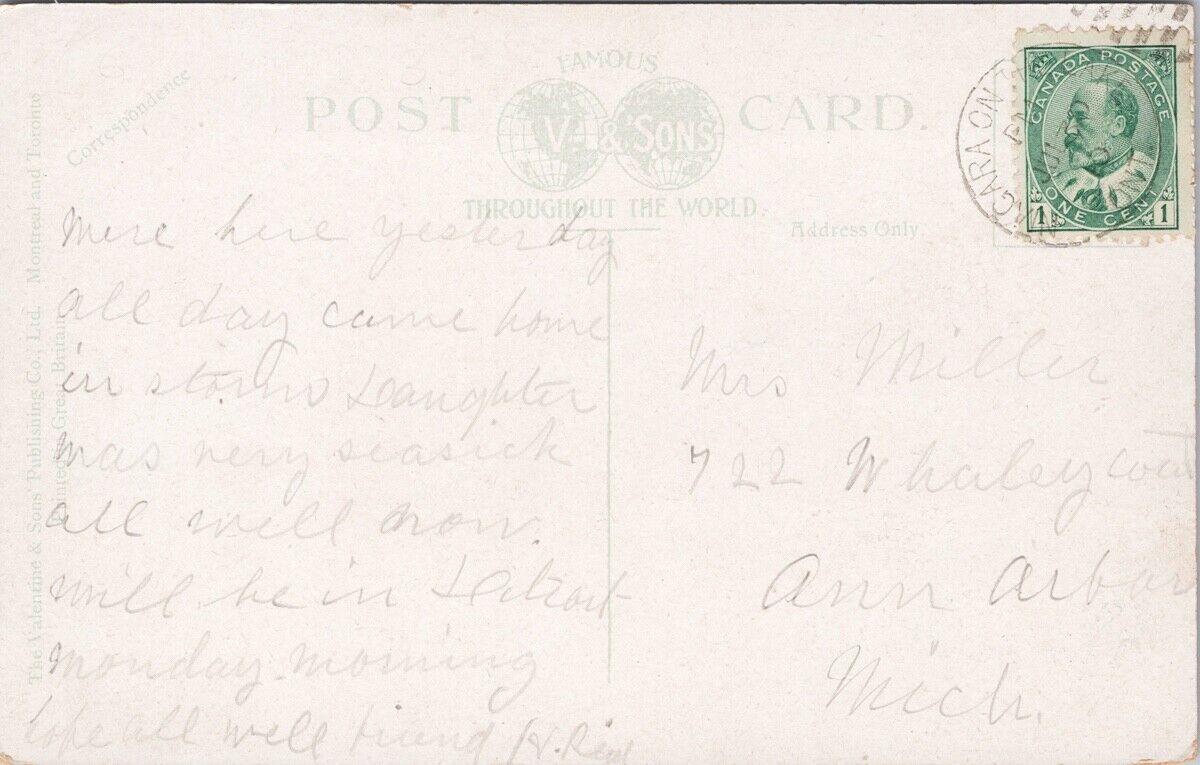 FAMOUS
POST CARD.
V. & SONS
THROUGHOUT THE WORLD.
Correspondence
Address Only
The Valentine & Sons' Publishing Co., Ltd. Montreal and Toronto
Printed Great Britain
CANADA POSTAGE
1 ONE CENT 1
NIAGARA ON
were here yesterday
all day came home
in storm Daughter
was very seasick
all well now.
will be in Detroit
monday morning
hope all well friend
Mrs Miller
722 Whaley
Ann Arbor
Mich.